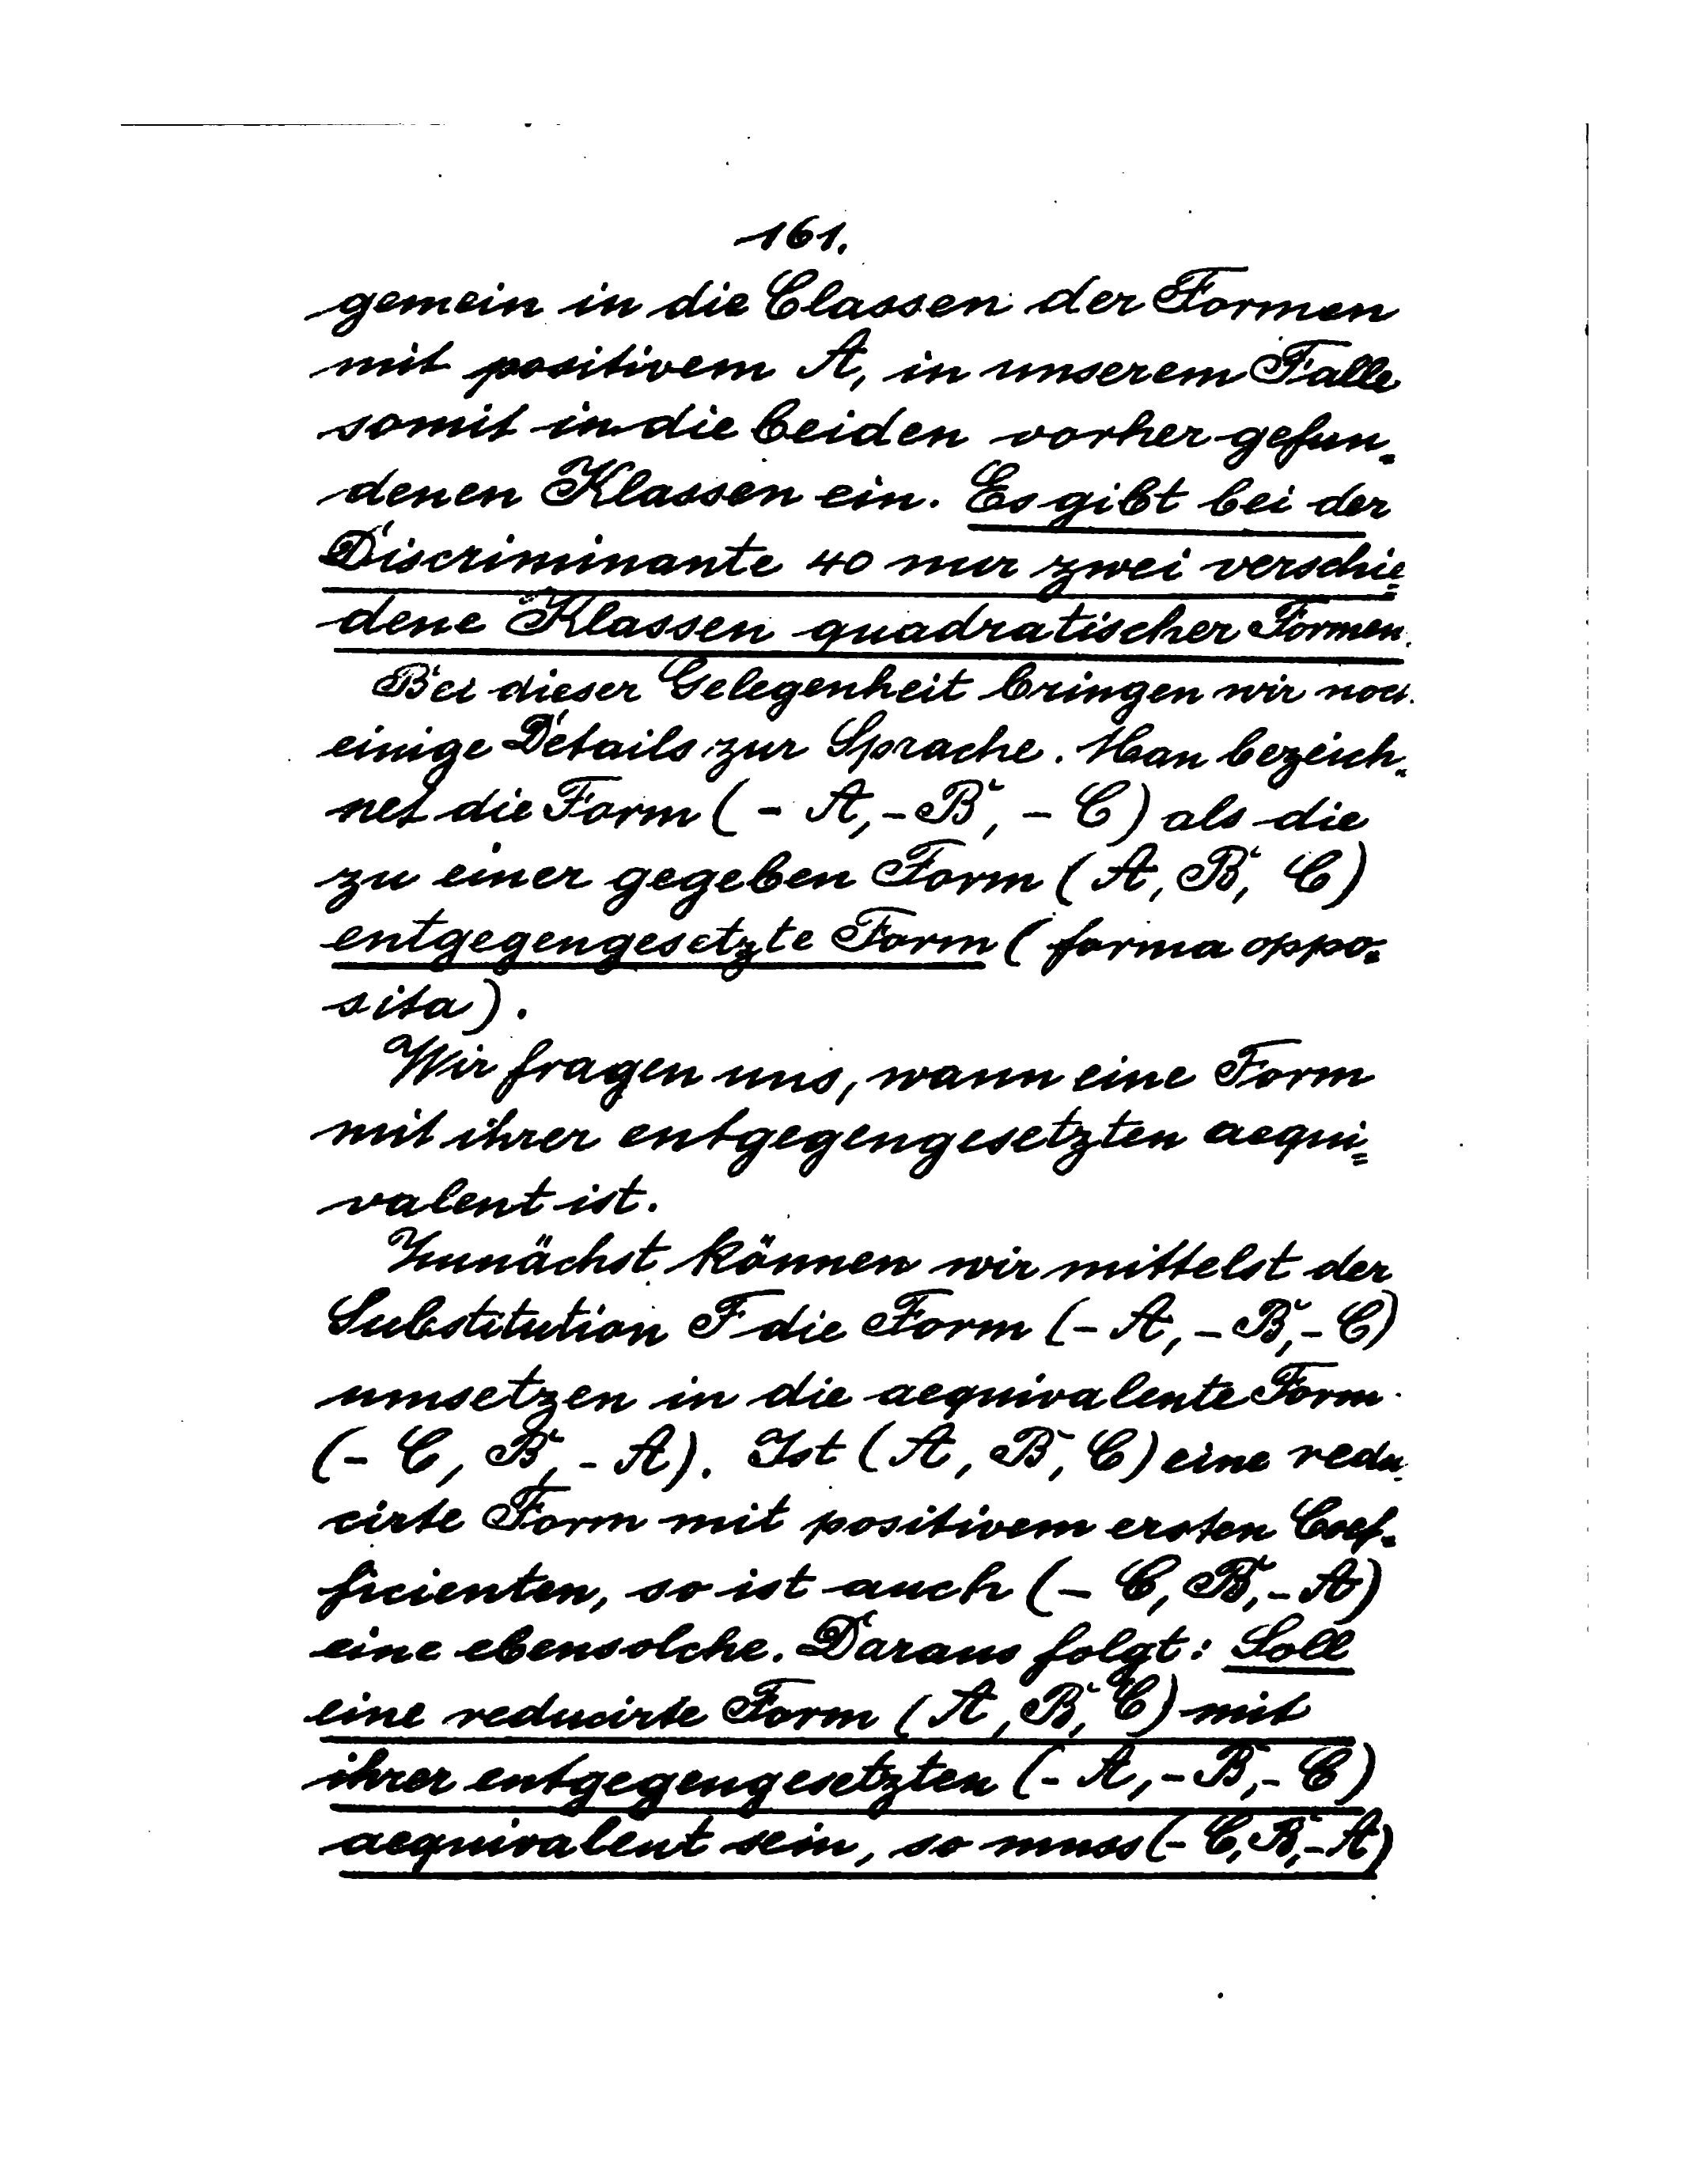 161.
gemein in die Classen der Formen
mit positivem A, in unserem Falle
somit in die beiden vorher gefun-
denen Klassen ein. Es gibt bei der
Discriminante 40 nur zwei verschie-
dene Klassen quadratischer Formen.
Bei dieser Gelegenheit bringen wir noch
einige Details zur Sprache. Man bezeich-
net die Form (- A, - B, - C) als die
zu einer gegeben Form (A, B, C)
entgegengesetzte Form (forma oppo-
sita).
Wir fragen uns, wann eine Form
mit ihrer entgegengesetzten aequi-
valent ist.
Zunächst können wir mittelst der
Substitution F die Form (- A, - B, - C)
umsetzen in die aequivalente Form
(- C, B, - A). Ist (A, B, C) eine redu-
cirte Form mit positivem ersten Coef-
ficienten, so ist auch (- C, B, - A)
eine ebensolche. Daraus folgt: Soll
eine reducirte Form (A, B, C) mit
ihrer entgegengesetzten (- A, - B, - C)
aequivalent sein, so muss (- C, B, - A)